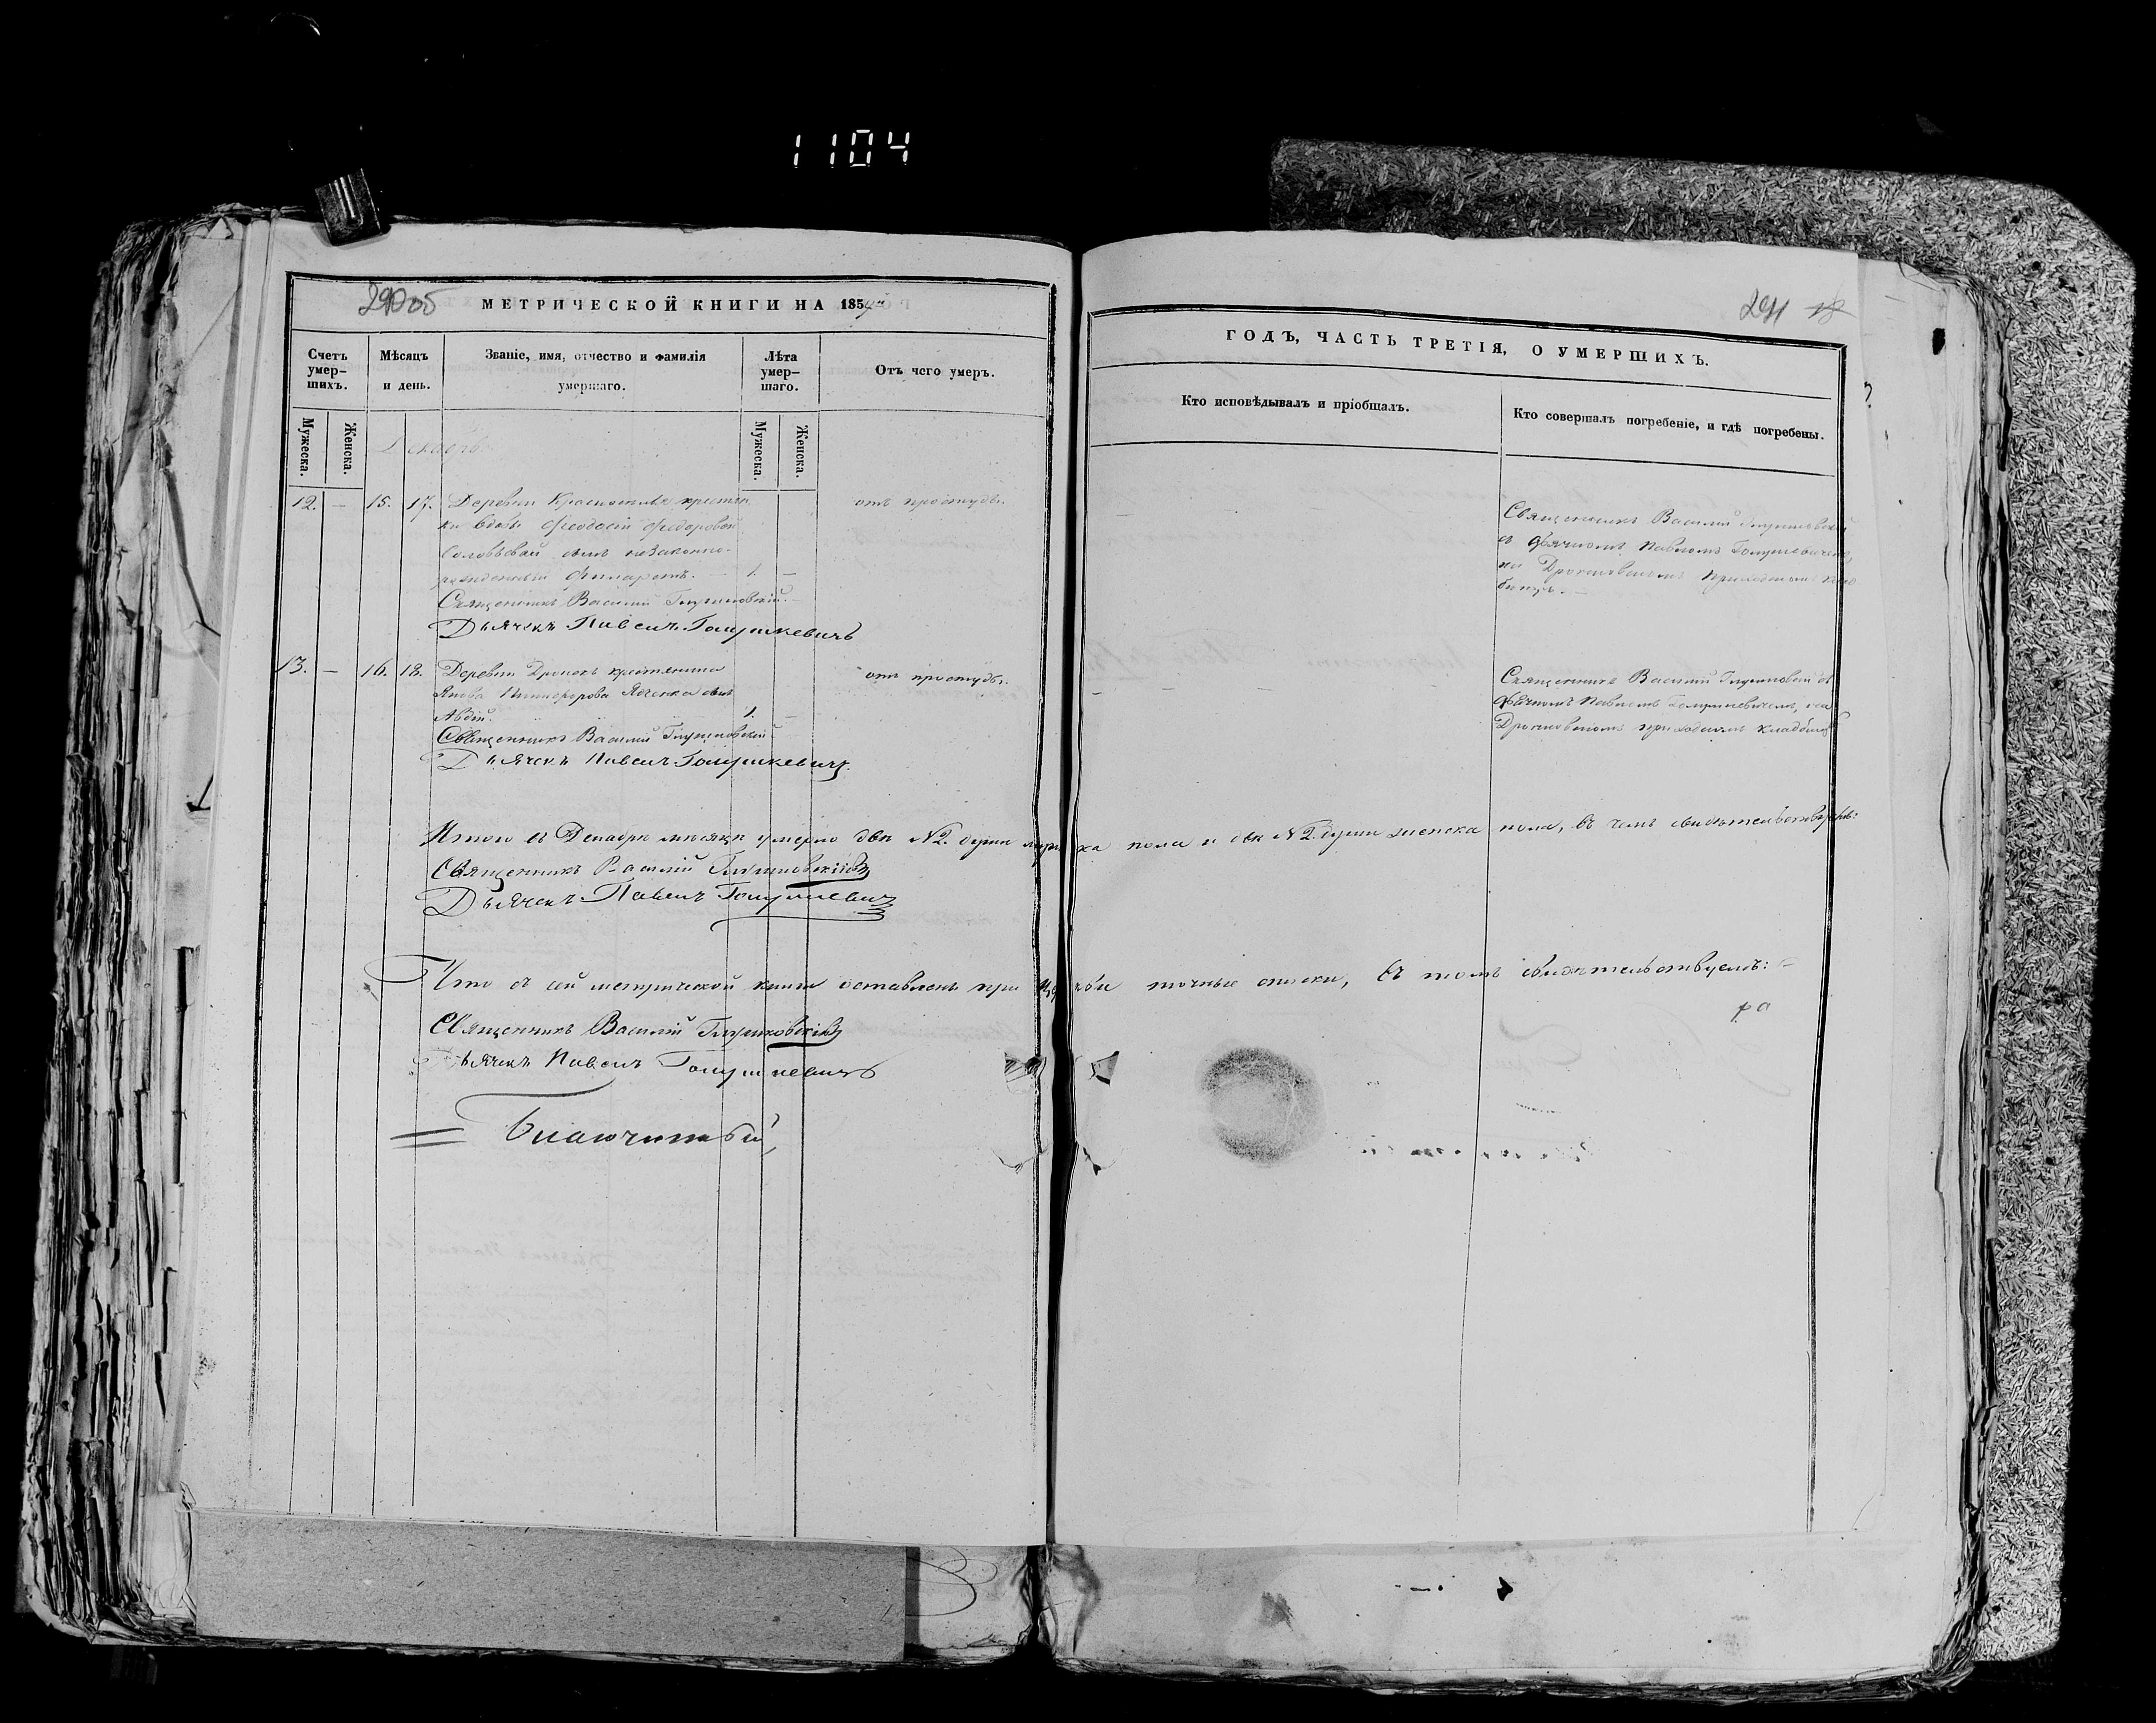 1104
290 об
МЕТРИЧЕСКОЙ КНИГИ НА 185
Счетъ умер-шихъ.
Мужеска.
Женска.
Мѣсяцъ и день.
Званіе, имя, отчество и фамилія умершаго.
Лѣта умер-шаго.
Мужеска.
Женска.
Отъ чего умеръ.
291
ГОДЪ, ЧАСТЬ ТРЕТІЯ, О УМЕРШИХЪ.
Кто исповѣдывалъ и пріобщалъ.
Кто совершалъ погребеніе, и гдѣ погребены.
Декабрь
12. — 15. 17. Деревни крестьян
ки вдовы Феодосіи Федоровой
Соловьевой сынъ незаконно-
рожденный Филаретъ. — 1. —
Священникъ Василій Глушковскій.
Дьячекъ Павелъ Голушкевичъ
отъ простуды.
Священникъ Василій Глушковскій
съ дьячкомъ Павломъ Голушкевичемъ,
на приходскомъ клад
бищѣ.
13. — 16. 18. Деревни крестьянина
Якова Никифорова сынъ
Авдій. 1. —
Священникъ Василій Глушковскій
Дьячекъ Павелъ Голушкевичъ.
отъ простуды.
Священникъ Василій Глушковскій съ
дьячкомъ Павломъ Голушкевичемъ, на
приходскомъ кладбищѣ
Итого въ Декабрѣ мѣсяцѣ умерло двѣ №2. души мужеска пола и двѣ №2. души женска пола, въ чемъ свидѣтельствуемъ:
Священникъ Василій Глушковскій
Дьячекъ Павелъ Голушкевичъ
Что съ сей метрической книги оставлены при Церкви точные списки, въ томъ свидѣтельствуемъ:
Священникъ Василій Глушковскій
Дьячекъ Павелъ Голушкевичъ
Благочинный